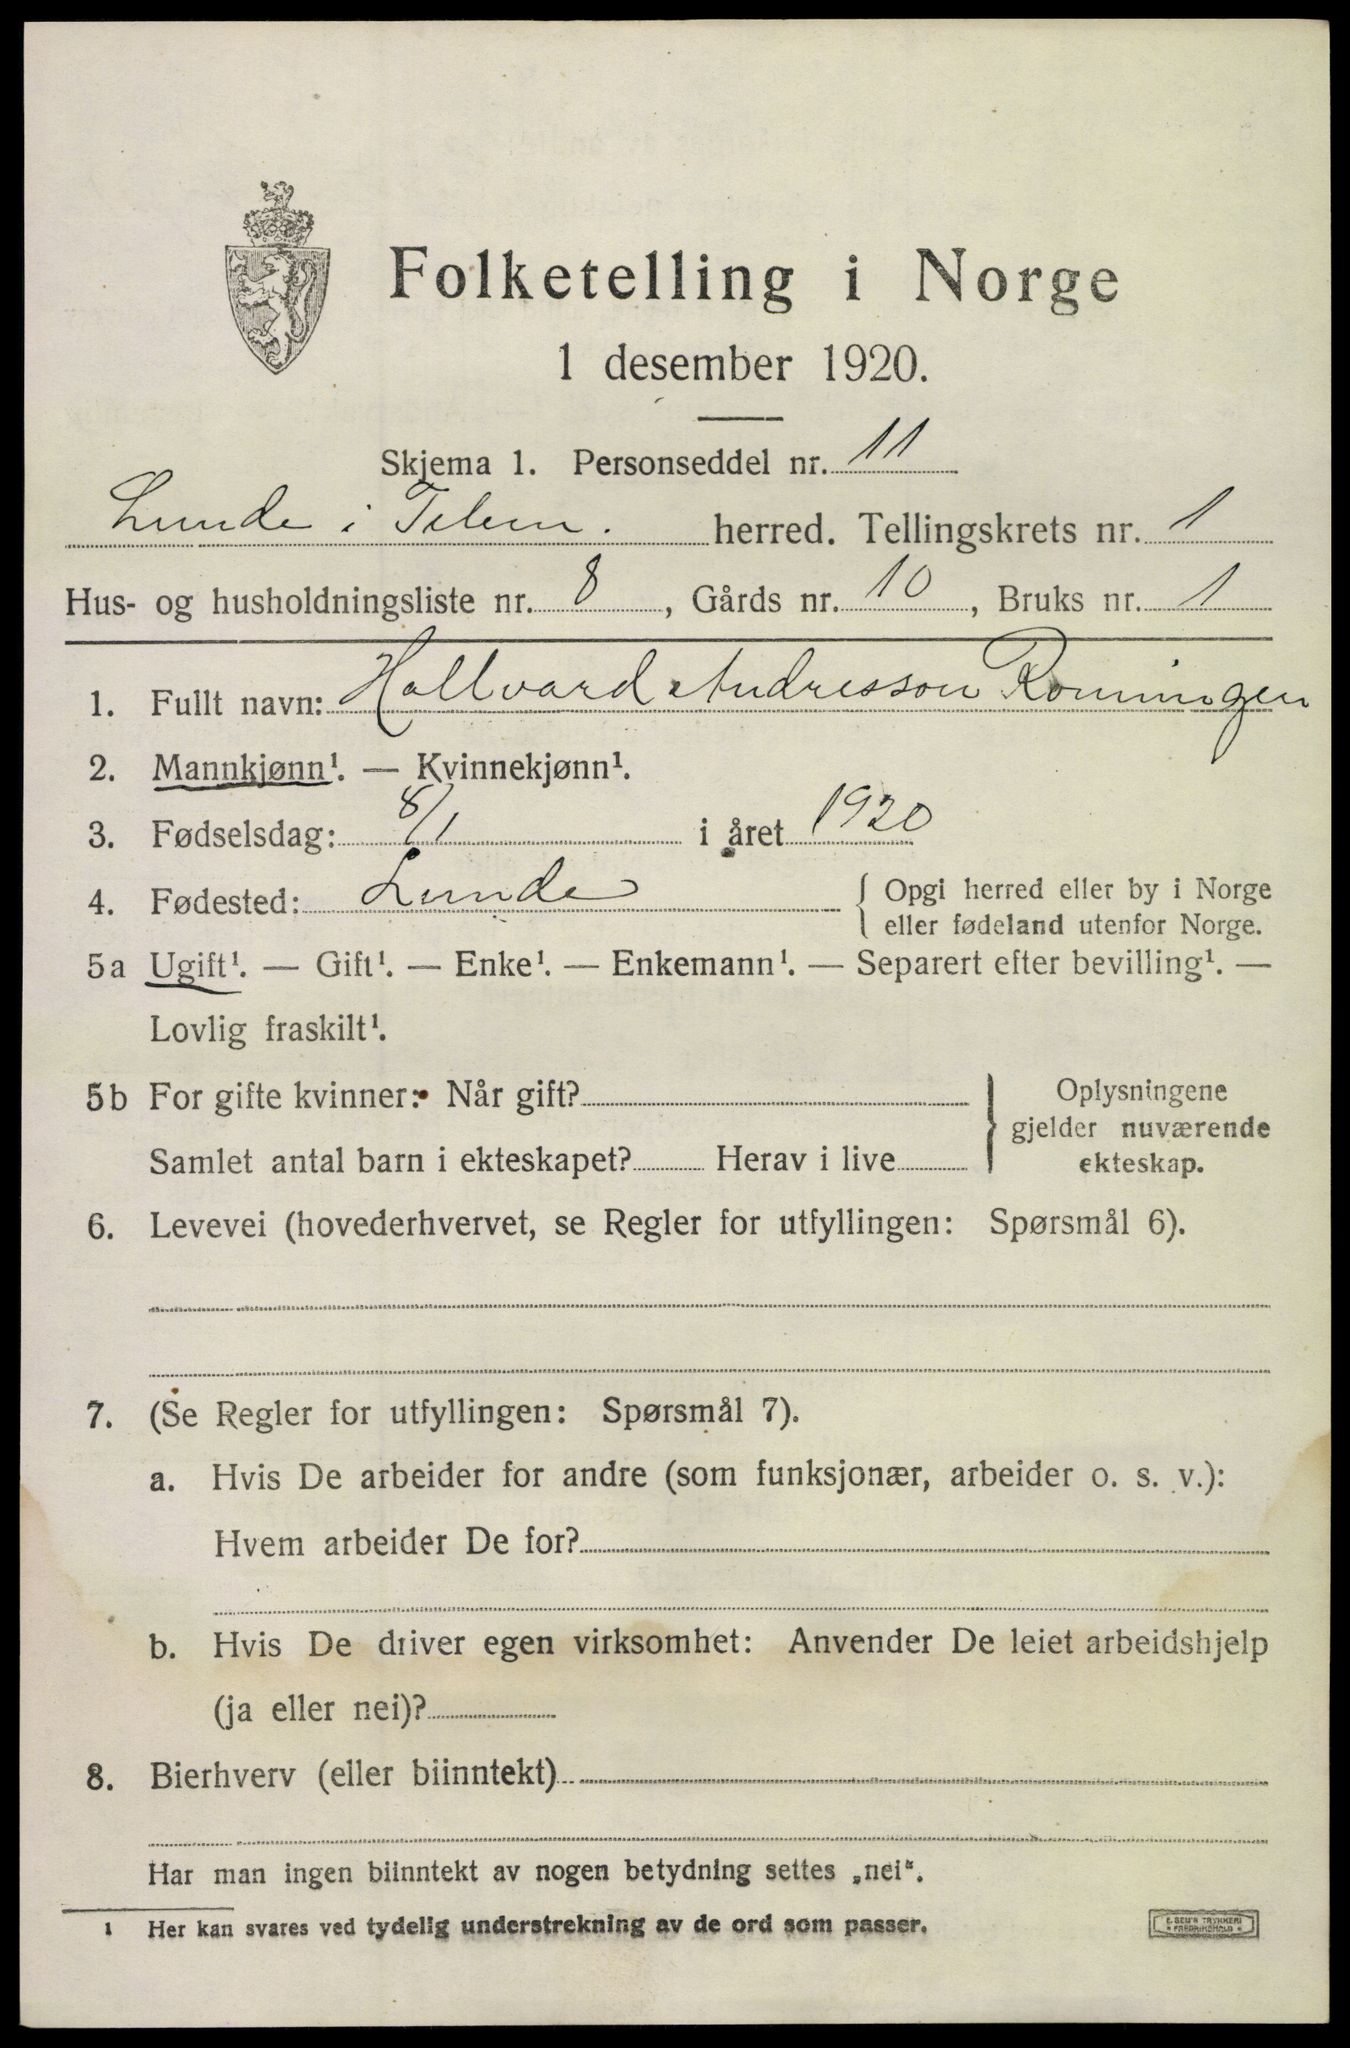 Folketelling i Norge
1 desember 1920.
Skjema 1. Personseddel nr. 11
Lunde i Telem. herred. Tellingskrets nr. 1
Hus- og husholdningsliste nr. 8, Gårds nr. 10, Bruks nr. 1
1. Fullt navn: Hallvard Andresson Romningen
2. Mannkjønn¹. — Kvinnekjønn¹.
3. Fødselsdag: 8/1 i året 1920
4. Fødested: Lunde { Opgi herred eller by i Norge
eller fødeland utenfor Norge.
5a Ugift¹. — Gift¹. — Enke¹. — Enkemann¹. — Separert efter bevilling¹. —
Lovlig fraskilt¹.
5b For gifte kvinner: Når gift?
Samlet antal barn i ekteskapet? Herav i live
} Oplysningene
gjelder nuværende
ekteskap.
6. Levevei (hovederhvervet, se Regler for utfyllingen: Spørsmål 6).
7. (Se Regler for utfyllingen: Spørsmål 7).
a. Hvis De arbeider for andre (som funksjonær, arbeider o. s. v.):
Hvem arbeider De for?
b. Hvis De driver egen virksomhet: Anvender De leiet arbeidshjelp
(ja eller nei)?
8. Bierhverv (eller biinntekt)
Har man ingen biinntekt av nogen betydning settes „nei“.
1 Her kan svares ved tydelig understrekning av de ord som passer.
E. SEM'S TRYKKERI
FREDRIKSHALD